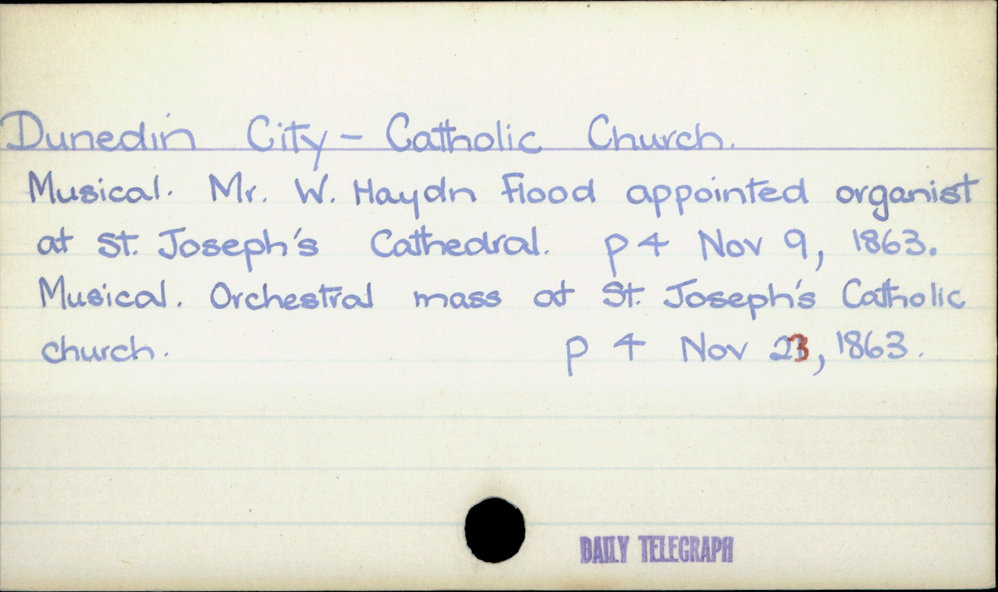 Dunedin City - Catholic Church.
Musical. Mr. W. Haydn Flood appointed organist
at St. Joseph's Cathedral. p 4 Nov 9, 1863.
Musical. Orchestral mass at St. Joseph's Catholic
church. p 4 Nov 23, 1863.
DAILY TELEGRAPH